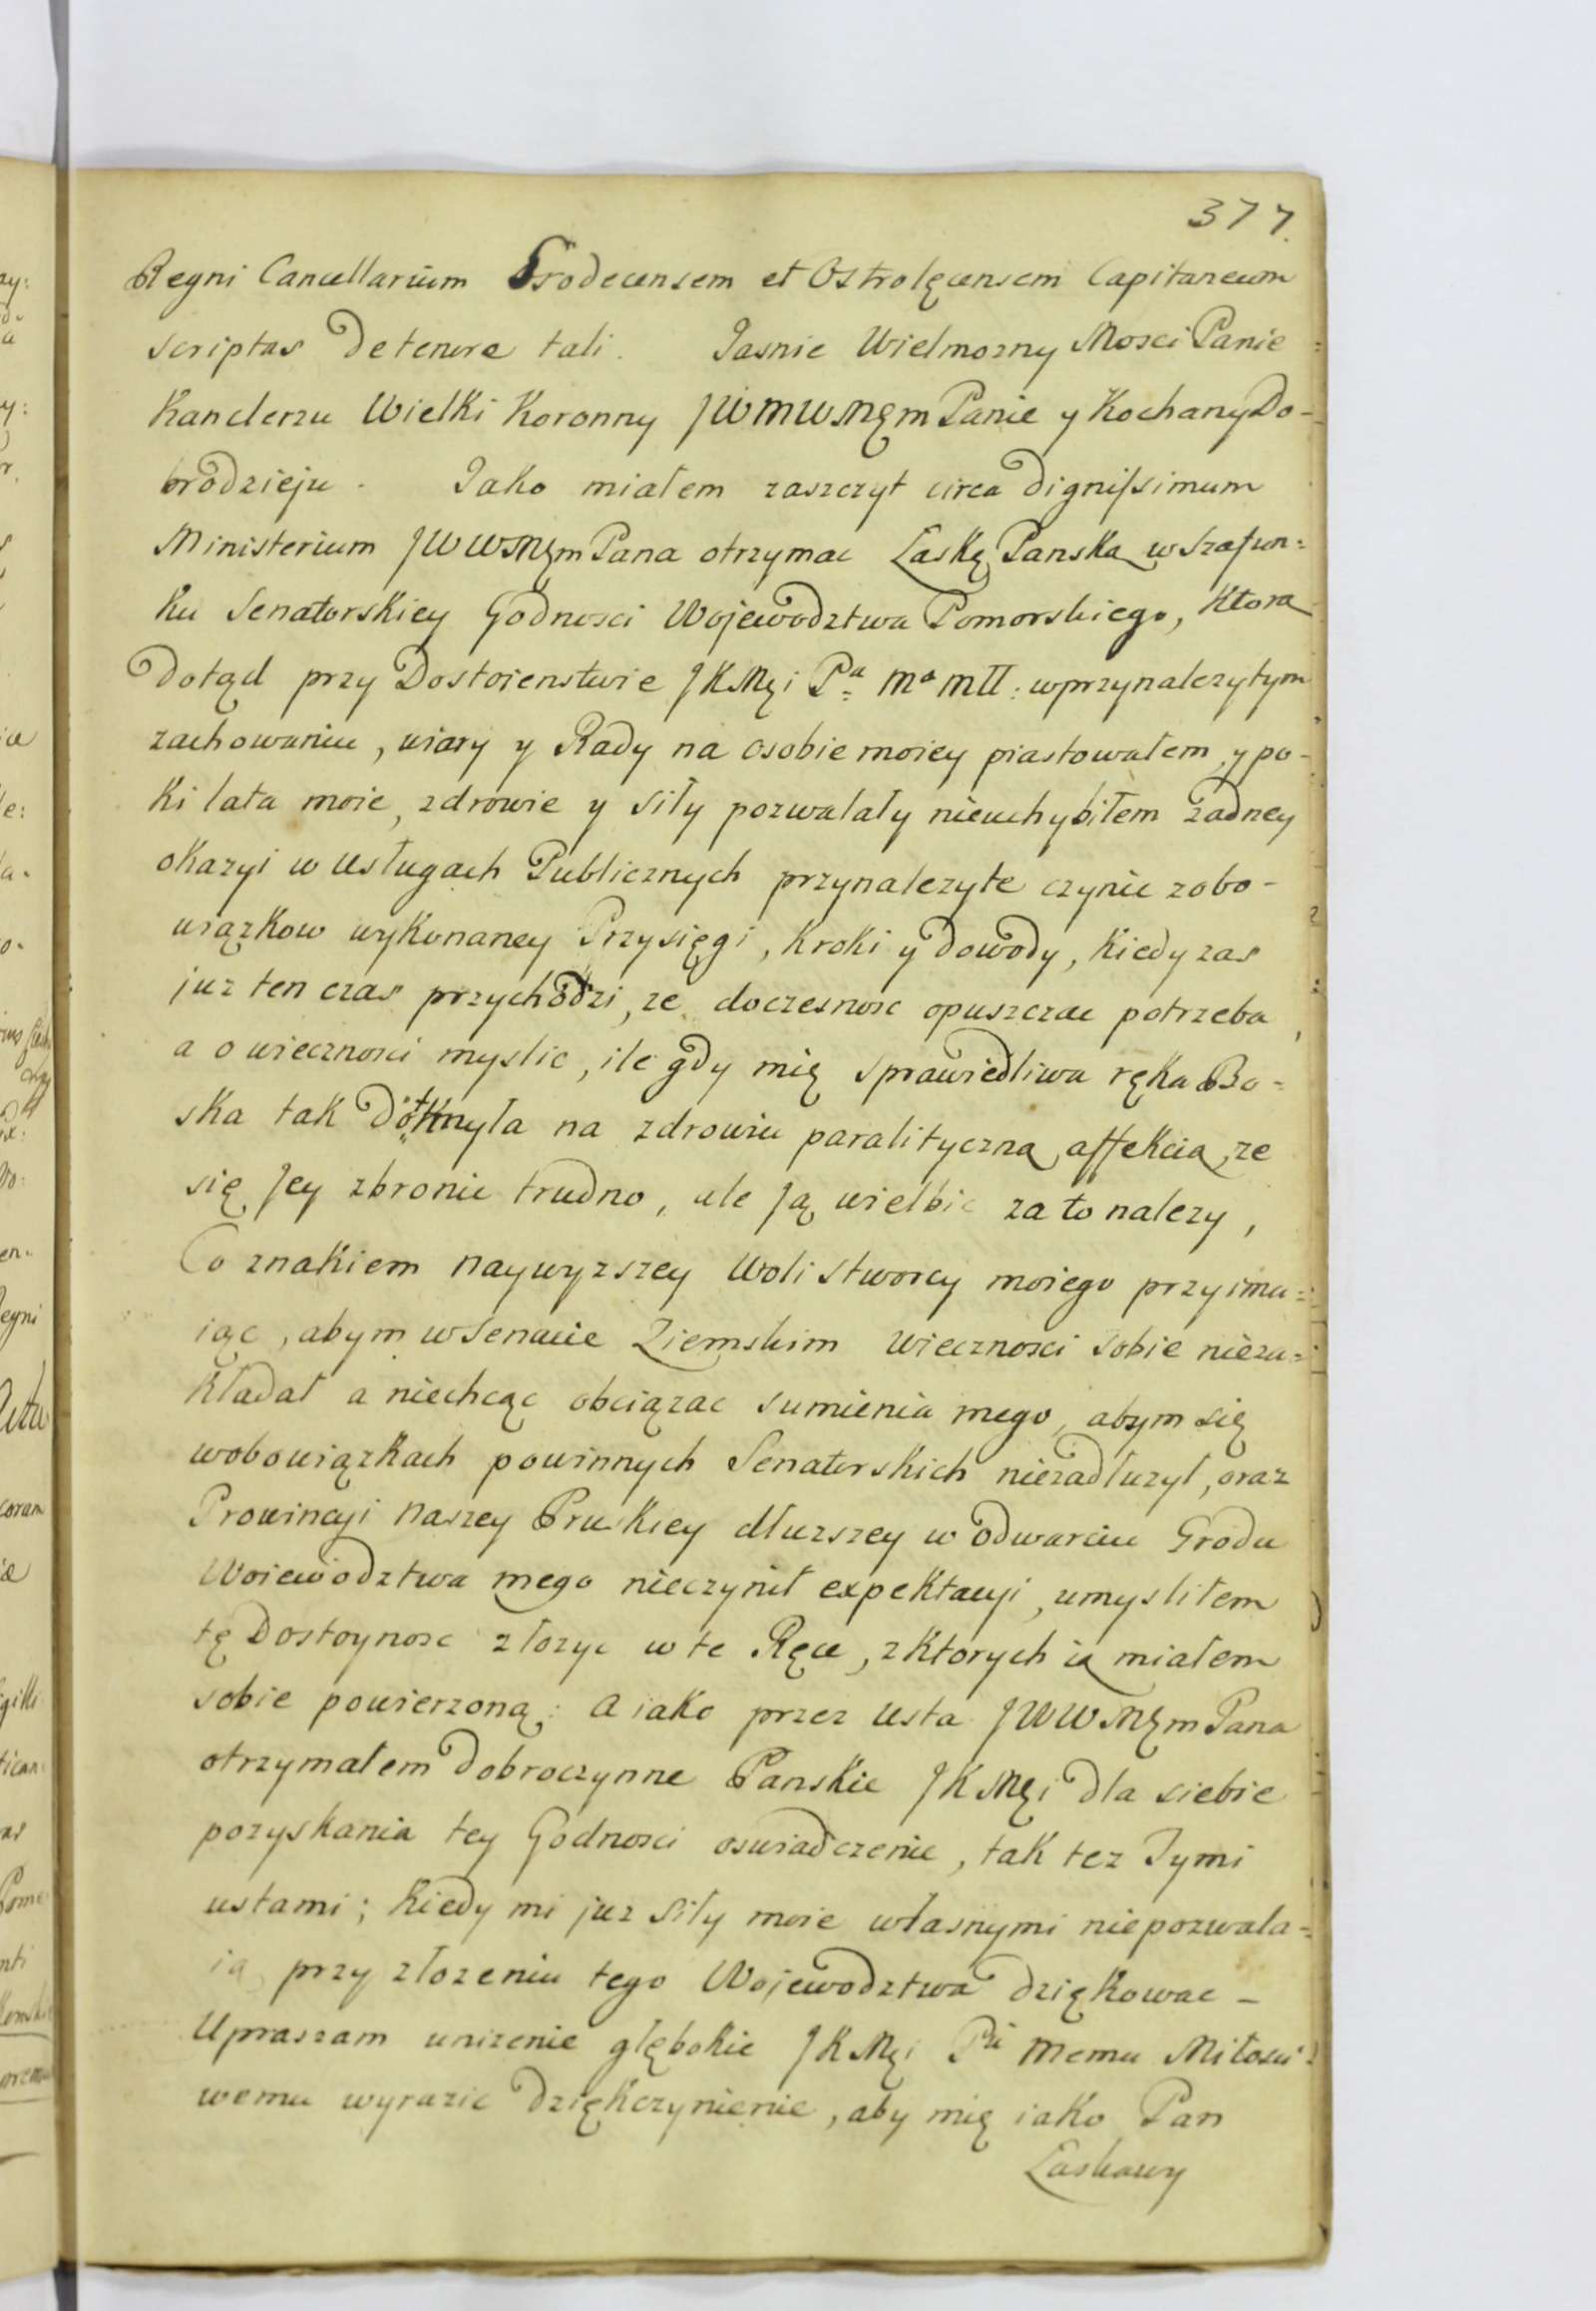 377.
Regni Cancellarium Grodecensem et Ostrolęcensem Capitaneum
scriptas de tenore tali. Jasnie Wielmozny Mosci Panie
Kanclerzu Wielki Koronny JWMWMęm Panie y Kochany Do-
brodzieju. Jako miałem zaszczyt circa dignissimum
Ministerium JWWMęm Pana otrzymac Łaskę Panską w Szafun=
ku Senatorskiey Godnosci Wojewodztwa Pomorskiego, ktorą
dotąd przy Dostoienstwie JKMęi Pa Ma MII: wprzynalezytym
zachowaniu, wiary y Rady na osobie moiey piastowałem, y po-
ki lata moie, zdrowie y siły pozwalały nieuchybiłem zadney
okazyi w usługach Publicznych przynalezyte czynic zobo-
wiązkow wykonaney Przysięgi, kroki y dowody, kiedy zas
juz ten czas przychodzi, ze doczesnosc opuszczac potrzeba,
a o wiecznosci myslic, ile gdy mię sprawiedliwa ręka Bo-
ska tak dotknęła na zdrowiu paralityczną affekcią, ze
się Jey zbronic trudno, ale Ją wielbic za to nalezy,
Co znakiem naywyzszey Woli stworcy moiego przyimu=
iąc, abym w Senacie Ziemskim wiecznosci sobie nieza=
kładał a niechcąc obciązac sumienia mego, abym się
wobowiązkach powinnych Senatorskich niezadłuzył, oraz
Prowincyi naszey Pruskiey dłuzszey w odwarciu Grodu
Woiewodztwa mego nieczynił expektacyi, umysliłem
tę Dostoynosc złozyc w te Ręce, z ktorych ią miałem
sobie powierzoną: A iako przez usta JWWMęm Pana
otrzymałem dobroczynne Panskie JKMęi dla siebie
pozyskania tey Godnosci oswiadczenie, tak tez Tymi
ustami; kiedy mi juz siły moie własnymi niepozwala=
ią przy złozeniu tego Wojewodztwa dziękowac –
Upraszam unizenie głębokie JKMęi Pu memu Miłosci=
wemu wyrazic dziękczynienie, aby mię iako Pan
Łaskawy